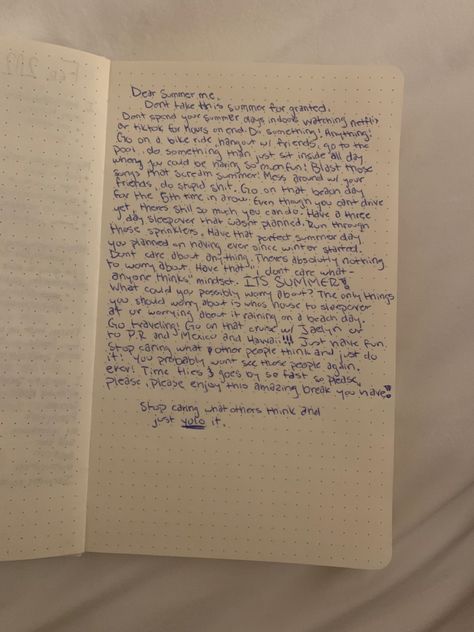 Dear Summer me,
Dont take this summer for granted.
Dont spend your summer days indoors watching netflix
or tiktok for hours on end. Do something! Anything!
Go on a bike ride, hangout w/ friends, go to the
pool, do something than just sit inside all day
when you could be having so much fun! Blast those
songs that scream summer! Mess around w/ your
friends, do stupid shit. Go on that beach day
for the 5th time in arow. Even though you cant drive
yet, theres still so much you can do. Have a three
day sleepover that wasnt planned. Run through
those sprinklers. Have that perfect summer day
you planned on having ever since winter started.
Dont care about anything. Theres absolutely nothing
to worry about. Have that "i dont care what-
anyone thinks" mindset. ITS SUMMER!
What could you possibly worry about? The only things
you should worry about is who's house to sleepover
at or worrying about it raining on a beach day.
Go traveling! Go on that cruise w/ Jaelyn or
to P.R and Mexico and Hawaii!!! Just have fun.
Stop caring what other people think and just do
it! You probably wont see those people again.
ever! Time flies & goes by so fast so please,
please, please enjoy this amazing break you have!
Stop caring what others think and
just yolo it.